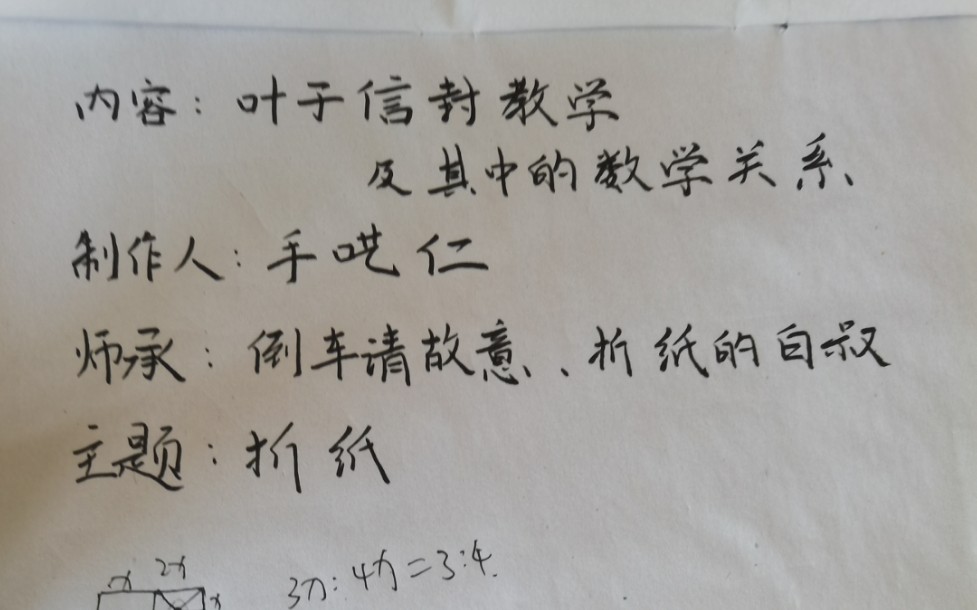 内容：叶子信封教学
及其中的数学关系、
制作人：手哾仁
师承：倒车请故意、折纸的白叔
主题：折纸
x 2x 3x:4x=3:4
x